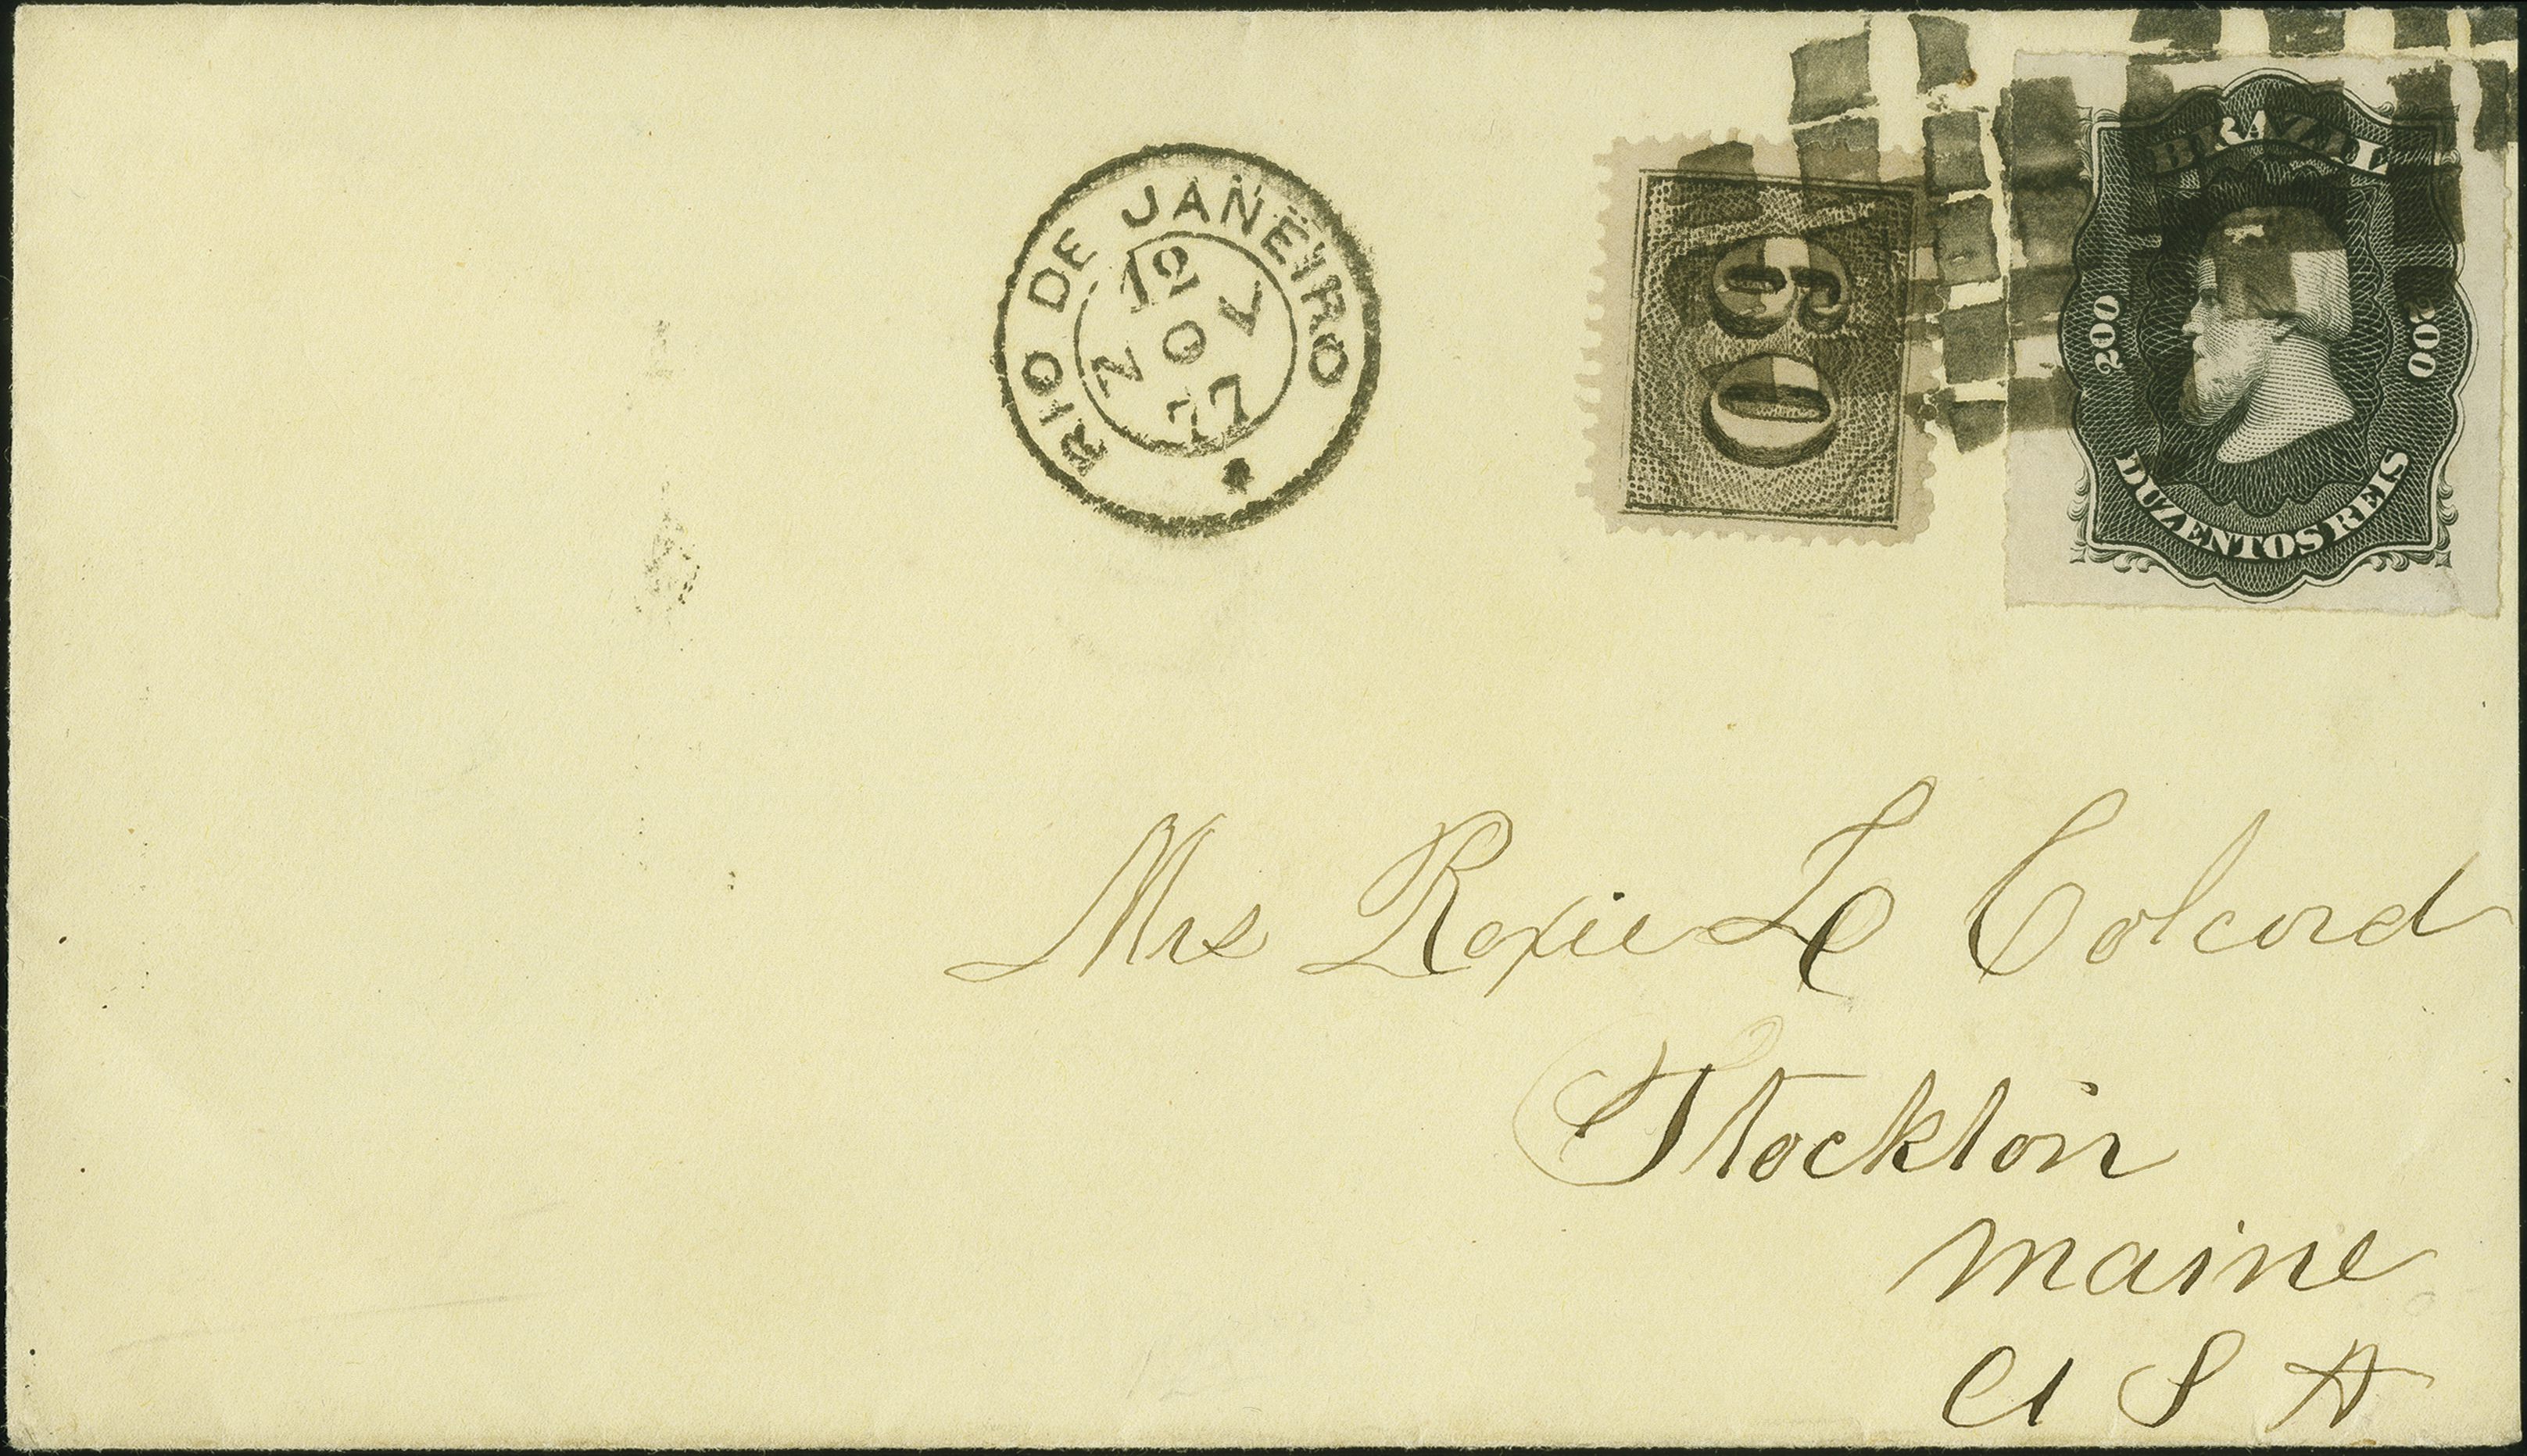 RIO DE JANEIRO
12
NOV
77
60
BRAZIL
200 200
DUZENTOS REIS
Mrs Roxie L Colcord
Stockton
Maine
U S A